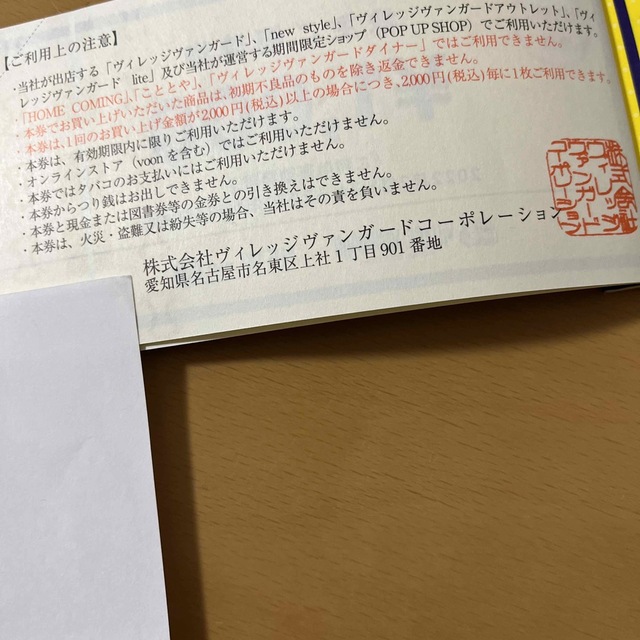 【ご利用上の注意】
・当社が出店する「ヴィレッジヴァンガード」、「new style」、「ヴィレッジヴァンガードアウトレット」、「ヴィ
レッジヴァンガード lite」及び当社が運営する期間限定ショップ（POP UP SHOP）でご利用いただけます。
・「HOME COMING」、「こととや」、「ヴィレッジヴァンガードダイナー」ではご利用できません。
・本券でお買い上げいただいた商品は、初期不良品のものを除き返金できません。
・本券は、1回のお買い上げ金額が2,000円（税込）以上の場合につき、2,000円（税込）毎に1枚ご利用できます。
・本券は、有効期限内に限りご利用いただけます。
・オンラインストア（voonを含む）ではご利用いただけません。
・本券ではタバコのお支払いにはご利用いただけません。
・本券からつり銭はお出しできません。
・本券と現金または図書券等の金券との引き換えはできません。
・本券は、火災・盗難又は紛失等の場合、当社はその責を負いません。
株式会社ヴィレッジヴァンガードコーポレーション
愛知県名古屋市名東区上社1丁目901番地
株式会社
ヴィレッジ
ヴァンガード
コーポレーション